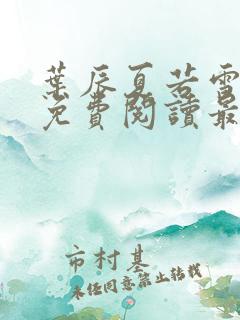 葉辰夏若雪
免費閱讀最
市村基
未經同意禁止轉載